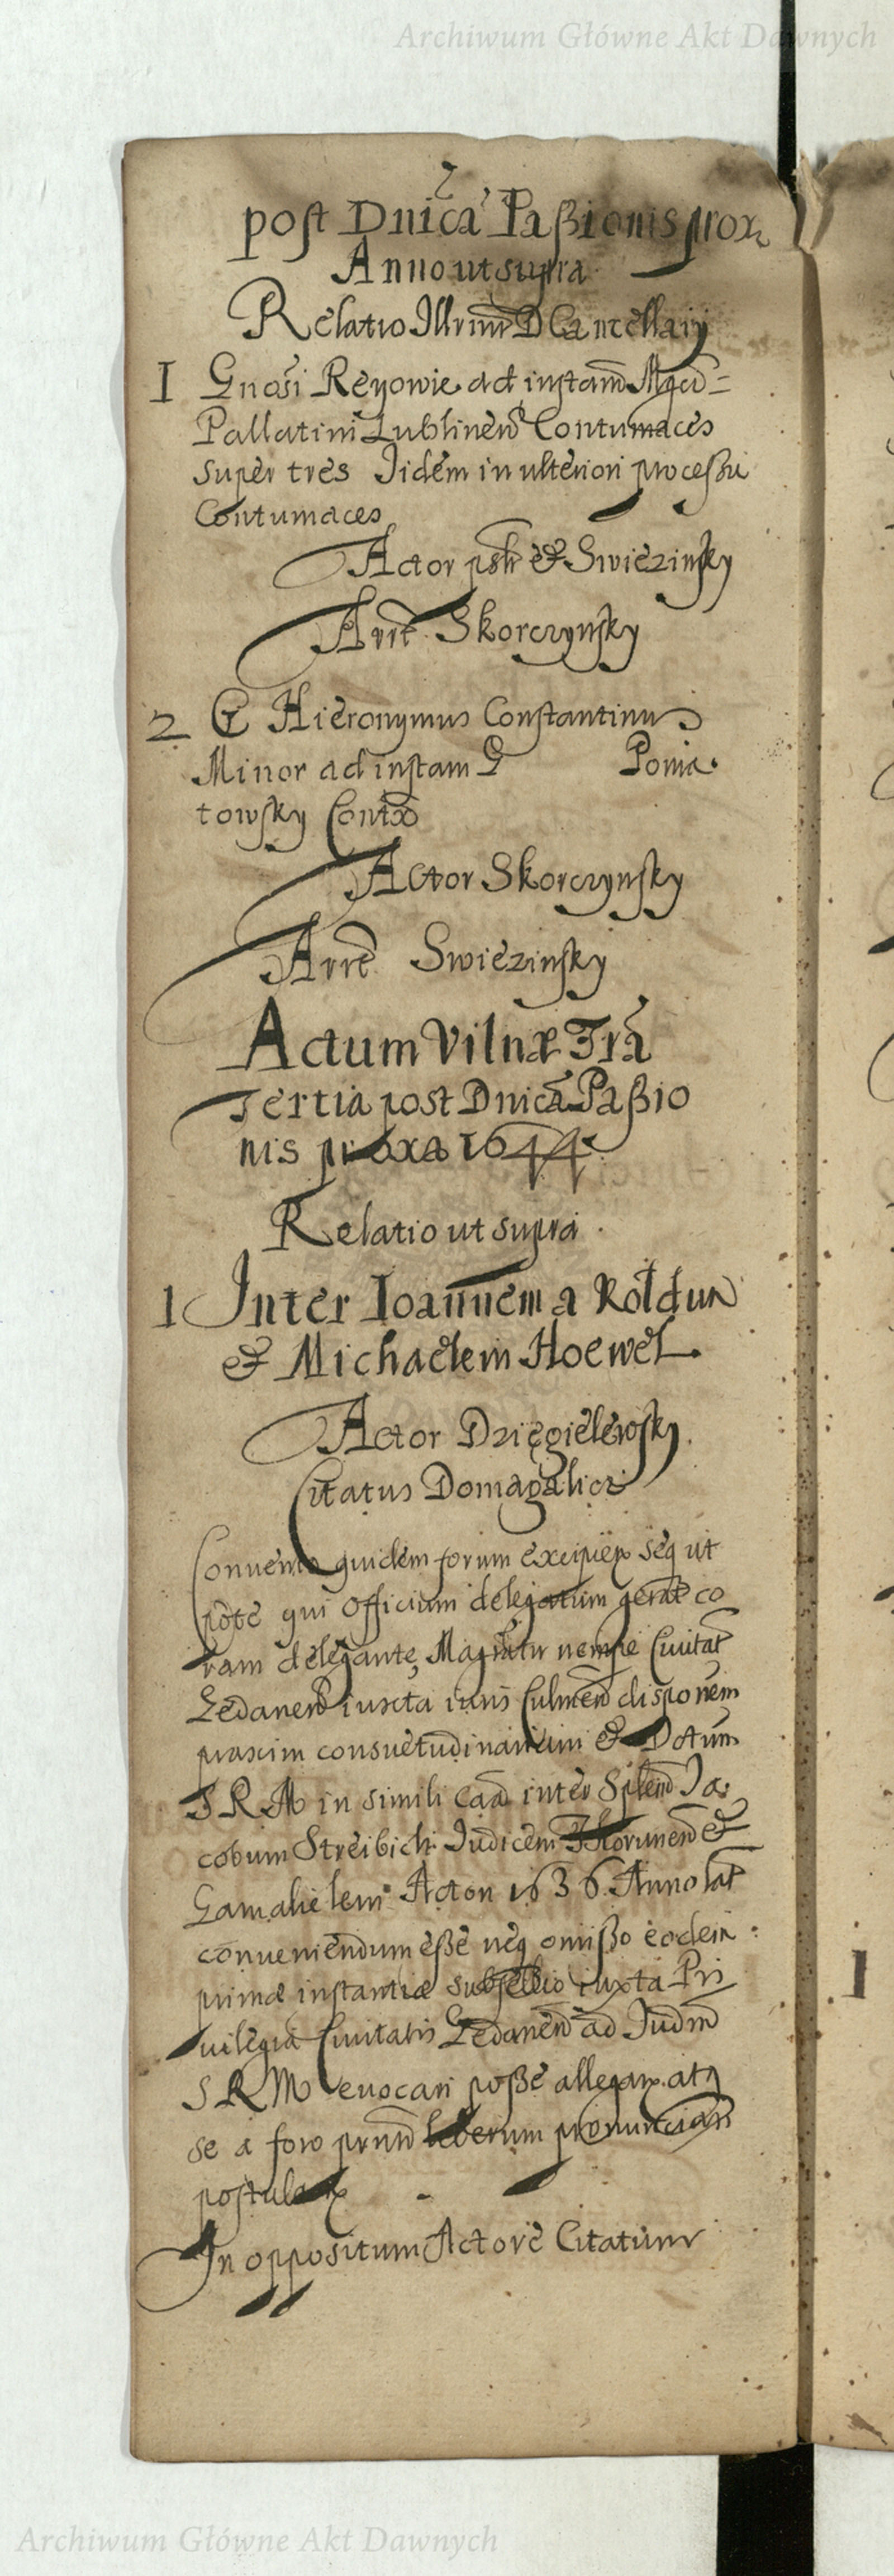 Archiwum Główne Akt Dawnych
2
post Dnicã Paßionis prox
Anno ut supra
Relatio Illrmi D Cancellarij
1 Gnosi Reyowie ad instam Mgci
Pallatini Lublinen Contumaces
super tres Iidem in ulteriori processu
Contumaces
Actor psh & Swiezinsky
Arrt Skorczynsky
2 G Hieronymus Constantinus
Minor ad instam G Ponia
towsky Contx
Actor Skorczynsky
Arrt Swiezinsky
Actum Vilnæ Fra
Tertia post Dnicã Paßio
nis proxa 1644
Relatio ut supra
1 Inter Ioannem a Koldun
& Michaelem Hoewel
Actor Dzięgielewsky
Citatus Domagalicz
Convento quidem forum excipien seq ut
pote qui officium delegatum gerat co
ram delegante Magratu nempe Civitat
Gedanen iuxta iuris Culmen disponem
praxim consuetudinarium & Dctum
S R M in simili caã inter Splend Ja
cobum Streibich Iudicem Thorunen &
Gamalielem Acton 1636 Anno lat
conveniendum eße neq omißo eodem
primæ instantiæ subsellio iuxta Pri
vilegia Civitatis Gedanen ad Iudm
S R M evocari poße allegan atq
se a foro prnti liberum pronunciari
postulan
In oppositum Actore Citatum
1
Archiwum Główne Akt Dawnych